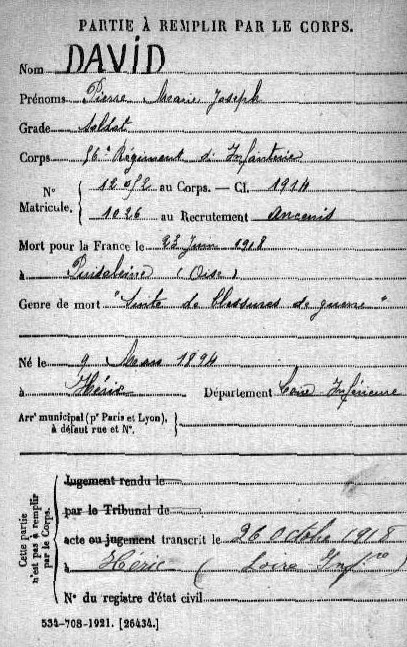 PARTIE À REMPLIR PAR LE CORPS.
Nom DAVID
Prénoms Pierre Marie Joseph
Grade Soldat
Corps 56e Régiment d'Infanterie
N° Matricule. 12052 au Corps. — Cl. 1914
1026 au Recrutement Ancenis
Mort pour la France le 23 Juin 1918
à (Oise)
Genre de mort "Suite de blessures de guerre"
Né le 9 Mars 1894
à Héric Département Loire Inférieure
Arrt municipal (pr Paris et Lyon), à défaut rue et N°.
Cette partie n'est pas à remplir par le Corps.
Jugement rendu le
par le Tribunal de
acte ou jugement transcrit le 26 Octobre 1918
à Héric (Loire Infre)
N° du registre d'état civil
534-708-1921. [26434.]